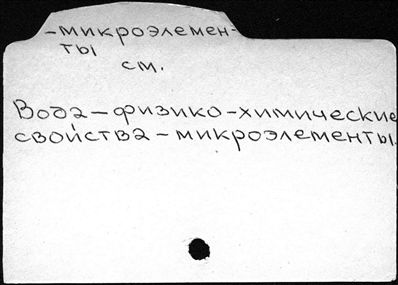 -микроэлемен-
ты
см.
Вода-физико-химические
свойства-микроэлементы.